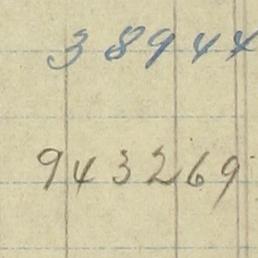 38944
943269